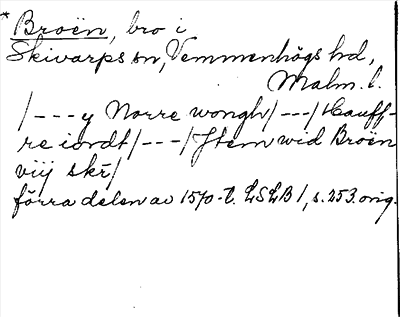 * Broën, bro i
Skivarps sn, Vemmenhögs hd,
Malm. l.
/---y Norre wongh/---/ Hauff-
re iordt/---/Jtem wid Broën
viij skr/
förra delen av 1570-t. LSLB 1, s. 253. orig.